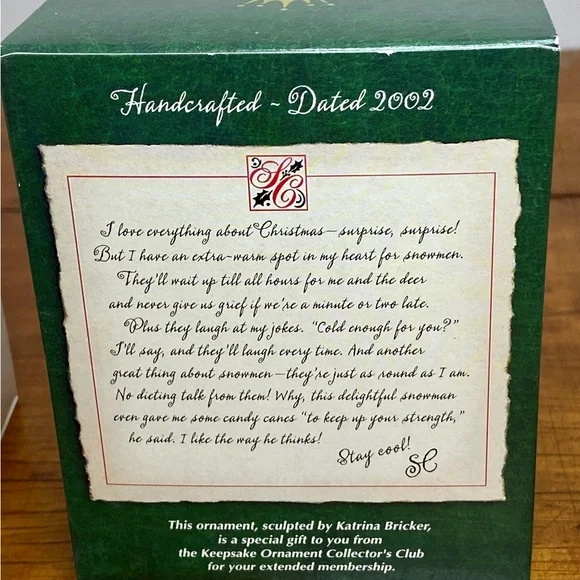 Handcrafted ~ Dated 2002
SC
I love everything about Christmas—surprise, surprise!
But I have an extra-warm spot in my heart for snowmen.
They'll wait up till all hours for me and the deer
and never give us grief if we're a minute or two late.
Plus they laugh at my jokes. "Cold enough for you?"
I'll say, and they'll laugh every time. And another
great thing about snowmen—they're just as round as I am.
No dieting talk from them! Why, this delightful snowman
even gave me some candy canes "to keep up your strength,"
he said. I like the way he thinks!
Stay cool!
SC
This ornament, sculpted by Katrina Bricker,
is a special gift to you from
the Keepsake Ornament Collector's Club
for your extended membership.